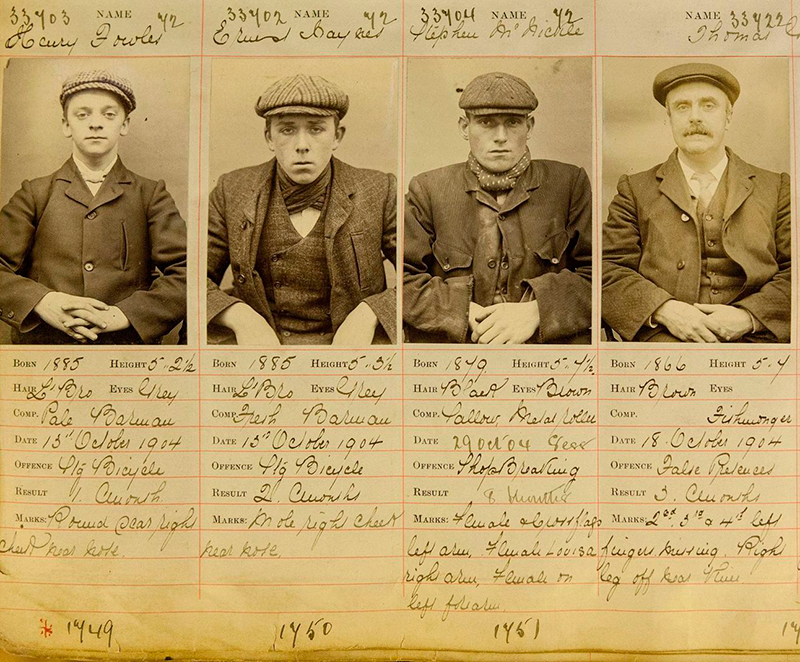 33703 NAME 72
Henry Fowler
Born 1885 Height 5-2½
Hair L'Bro Eyes Grey
Comp. Pale Barman
Date 15th October 1904
Offence Stg Bicycle
Result 1. Cmonth
Marks: Round scar right
cheek near nose.
1749
33702 NAME 72
Ernest Haynes
Born 1885 Height 5.3½
Hair L'Bro Eyes Grey
Comp. Fresh Barman
Date 15th October 1904
Offence Stg Bicycle
Result 2. Cmonths
Marks: Mole right cheek
near nose.
1750
33704 NAME 72
Stephen
Born 1879 Height 5-4½
Hair Black Eyes Brown
Comp. Sallow, Metal roller
Date 29 Oct 04 Sess
Offence Shop Breaking
Result 8 months
Marks: Female & Cross flags
left arm, Female Louisa
right arm, Female on
left forearm
1751
NAME 33722
Thomas
Born 1866 Height 5-4
Hair Brown Eyes
Comp. Fishmonger
Date 18. October 1904
Offence False Pretences
Result 3. Cmonths
Marks: 2nd, 3rd & 4th left
fingers missing. Right
leg off near
17